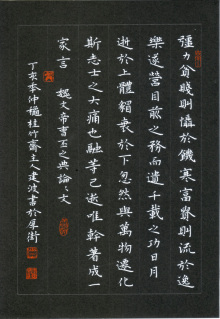 彊力貧賤則懾於饑寒富貴則流於逸
樂遂營目前之務而遺千載之功日月
逝於上體貌衰於下忽然與萬物遷化
斯志士之大痛也融等已逝唯幹著成一
家言　魏文帝曹丕之典論論文
丁亥春仲桂竹齋主人建波書於犀街